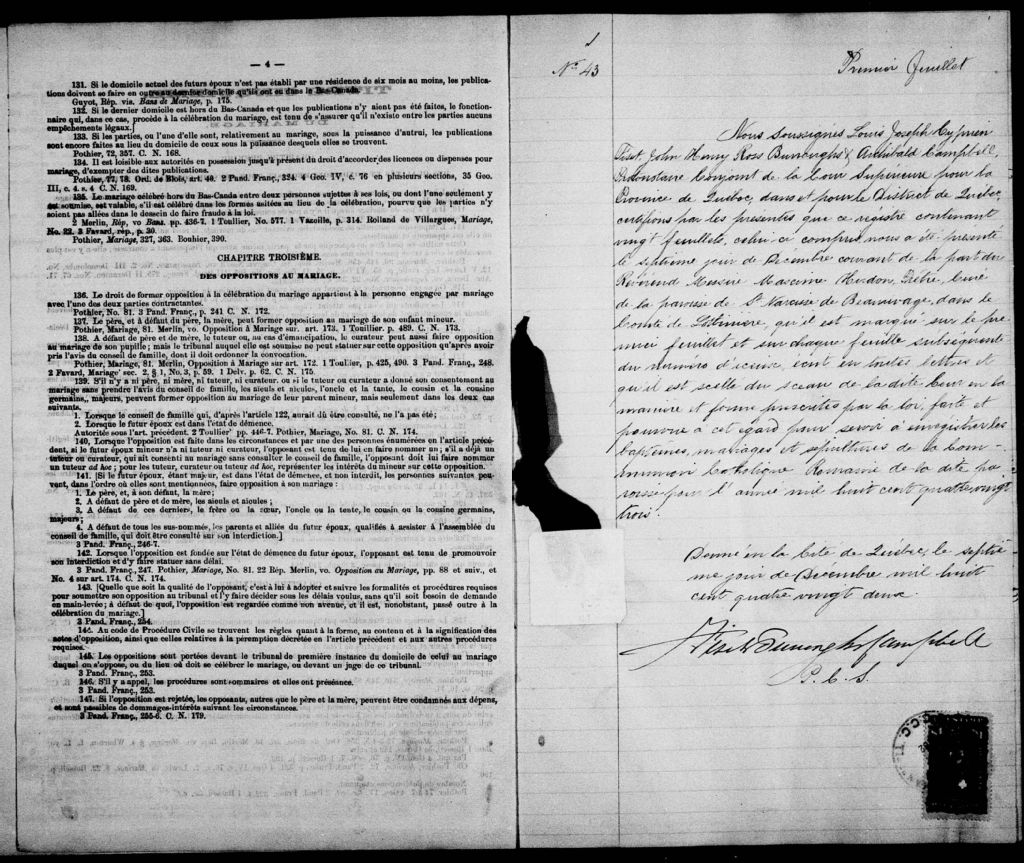 — 4 —
131. Si le domicile actuel des futurs époux n'est pas établi par une résidence de six mois au moins, les publica-
tions doivent se faire en outre au dernier domicile qu'ils ont eu dans le Bas-Canada.
Guyot, Rép. vis. Bans de Mariage, p. 175.
132. Si le dernier domicile est hors du Bas-Canada et que les publications n'y aient pas été faites, le fonction-
naire qui, dans ce cas, procède à la célébration du mariage, est tenu de s'assurer qu'il n'existe entre les parties aucuns
empêchements légaux.]
133. Si les parties, ou l'une d'elles sont, relativement au mariage, sous la puissance d'autrui, les publications
sont encore faites au lieu du domicile de ceux sous la puissance desquels elles se trouvent.
Pothier, 72, 357. C. N. 168.
134. Il est loisible aux autorités en possession jusqu'à présent du droit d'accorder des licences ou dispenses pour
mariage, d'exempter des dites publications.
Pothier, 77, 78. Ord. de Blois, art. 40. 2 Pand. Franç., 324. 4 Geo. IV, c. 76 en plusieurs sections, 35 Geo.
III, c. 4. s. 4 C. N. 169.
135. Le mariage célébré hors du Bas-Canda entre deux personnes sujettes à ses lois, ou dont l'une seulement y
est soumise, est valable, s'il est célébré dans les formes usitées au lieu de la célébration, pourvu que les parties n'y
soient pas allées dans le dessein de faire fraude à la loi.
2 Merlin, Rép, vo Bans. pp. 436-7. 1 Toullier, No. 577. 1 Vazeille, p. 314. Rolland de Villargues, Mariage,
No. 22. 3 Favard, rép., p. 30.
Pothier, Mariage, 327, 363. Bouhier, 390.
CHAPITRE TROISIÈME.
DES OPPOSITIONS AU MARIAGE.
136. Le droit de former opposition à la célébration du mariage appartient à la personne engagée par mariage
avec l'une des deux parties contractantes.
Pothier, No. 81. 3 Pand. Franç., p. 241 C. N. 172.
137. Le père, et à défaut du père, la mère, peut former opposition au mariage de son enfant mineur.
Pothier, Mariage, 81. Merlin, vo. Opposition à Mariage sur. art. 173. 1 Touillier. p. 489. C. N. 173.
138. A défaut de père et de mère, le tuteur ou, au cas d'émancipation, le curateur peut aussi faire opposition
au mariage de son pupille; mais le tribunal auquel elle est soumise ne peut statuer sur cette opposition qu'après avoir
pris l'avis du conseil de famille, dont il doit ordonner la convocation.
Pothier, Mariage, 81. Merlin, Opposition à Mariage sur art. 172. 1 Toullier, p. 425, 490. 3 Pand. Franç., 248.
2 Favard, Mariage sec. 2, § 1, No. 3, p. 59. 1 Delv. p. 62. C. N. 175.
139. S'il n'y a ni père, ni mère, ni tuteur, ni curateur, ou si le tuteur ou curateur a donné son consentement au
mariage sans prendre l'avis du conseil de famille, les aïeuls et aïeules, l'oncle et la tante, le cousin et la cousine
germains, majeurs, peuvent former opposition au mariage de leur parent mineur, mais seulement dans les deux cas
suivants.
1. Lorsque le conseil de famille qui, d'après l'article 122, aurait dû être consulté, ne l'a pas été;
2. Lorsque le futur époux est dans l'état de démence.
Autorités sous l'art. précédent. 2 Toullier pp. 446-7. Pothier, Mariage, No. 81. C. N. 174.
140, Lorsque l'opposition est faite dans les circonstances et par une des personnes énumérées en l'article précé-
dent, si le futur époux mineur n'a ni tuteur ni curateur, l'opposant est tenu de lui en faire nommer un; s'il a déjà un
tuteur ou curateur, qui ait consenti au mariage sans consulter le conseil de famille, l'opposant doit lui faire nommer
un tuteur ad hoc; pour les tuteur, curateur ou tuteur ad hoc, représenter les intérêts du mineur sur cette opposition.
141. [Si le futur époux, étant majeur, est dans l'état de démence, et non interdit, les personnes suivantes peu-
vent, dans l'ordre où elles sont mentionnées, faire opposition à son mariage:
1. Le père, et, à son défaut, la mère;
2. A défaut de père et de mère, les aïeuls et aïeules;
3. A défaut de ces derniers, le frère ou la sœur, l'oncle ou la tante, le cousin ou la cousine germains,
majeurs;
4. A défaut de tous les sus-nommés, les parents et alliés du futur époux, qualifiés à assister à l'assemblée du
conseil de famille, qui doit être consulté sur son interdiction.]
3 Pand. Franç., 246-7.
142. Lorsque l'opposition est fondée sur l'état de démence du futur époux, l'opposant est tenu de promouvoir
son interdiction et d'y faire statuer sans délai.
3 Pand. Franç., 247. Pothier, Mariage, No. 81. 22 Rép. Merlin, vo. Opposition au Mariage, pp. 88 et suiv., et
No. 4 sur art. 174. C. N. 174.
143. [Quelle que soit la qualité de l'opposant, c'est à lui à adopter et suivre les formalités et procédures requises
pour soumettre son opposition au tribunal et l'y faire décider sous les délais voulus, sans qu'il soit besoin de demande
en main-levée; à défaut de quoi, l'opposition est regardée comme non avenue, et il est, nonobstant, passé outre à la
célébration du mariage.]
3 Pand. Franç., 254.
144. Au code de Procédure Civile se trouvent les règles quant à la forme, au contenu et à la signification des
actes d'opposition, ainsi que celles relatives à la péremption décrétée en l'article précédent et aux autres procédures
requises.
145. Les oppositions sont portées devant le tribunal de première instance du domicile de celui au mariage
duquel on s'oppose, ou du lieu où doit se célébrer le mariage, ou devant un juge de ce tribunal.
3 Pand. Franç., 253.
146. S'il y a appel, les procédures sont sommaires et elles ont préséance.
3 Pand. Franç., 253.
147. Si l'opposition est rejetée, les opposants, autres que le père et la mère, peuvent être condamnés aux dépens,
et sont passibles de dommages-intérêts suivant les circonstances.
3 Pand. Franç., 255-6. C. N. 179.
No 43
Premier feuillet
Nous Soussignés Louis Joseph Cyprien
Fiset, John Henry Ross Burroughs & Archibald Campbell,
Protonotaire Conjoint de la Cour Supérieure pour la
Province de Québec, dans et pour le District de Québec,
certifions par les présentes que ce régistre contenant
vingt feuillets, celui-ci compris, nous a été présenté
le septième jour de Décembre courant de la part du
Révérend Messire Maxime Hudon, Prêtre, Curé
de la paroisse de St Narcisse de Beaurivage, dans le
Comté de Lotbinière, qu'il est marqué sur le pre
mier feuillet et sur chaque feuille subséquente
du numéro d'iceux, écrit en toutes lettres et
qu'il est scellé du sceau de la dite Cour en la
manière et forme prescrites par la loi, faite et
pourvue à cet égard pour servir à enregistrer les
baptêmes, mariages et sépultures de la Com-
munion Catholique Romaine de la dite pa
roisse pour l'année mil huit cent quatre vingt
trois.
Donné en la Cité de Québec, le septiè
me jour de Décembre mil huit
cent quatre vingt deux.
Fiset Burroughs Campbell
P. C. S.